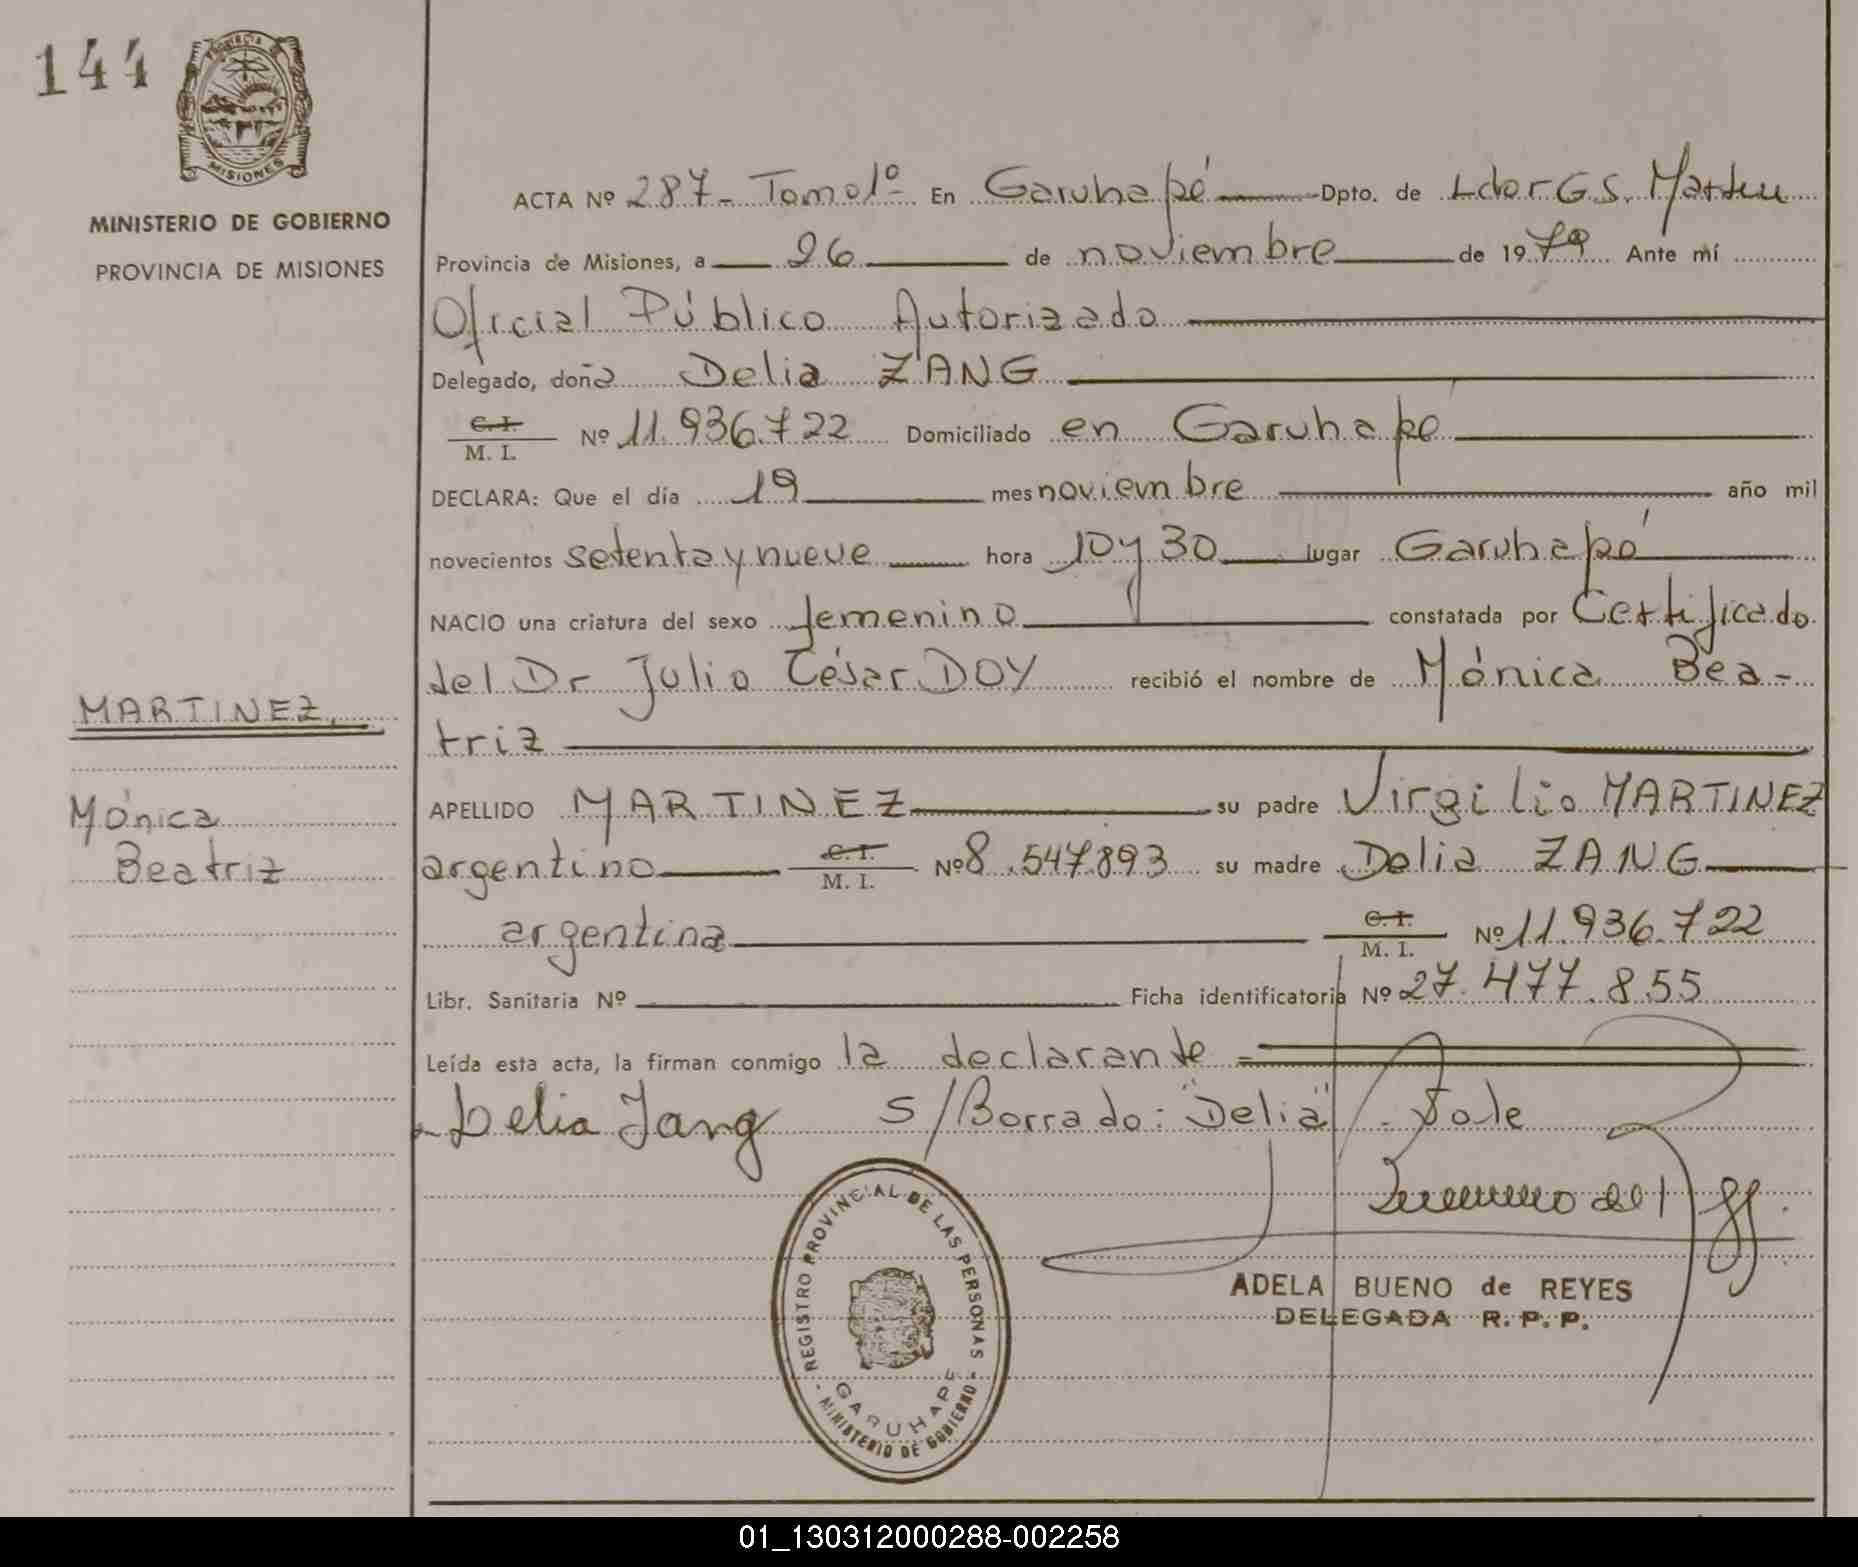 144
PROVINCIA DE
MISIONES
MINISTERIO DE GOBIERNO
PROVINCIA DE MISIONES
MARTINEZ,
Mónica
Beatriz
ACTA Nº 287- Tomo 1º En Garuhapé Dpto. de Ldor G.S. Martin
Provincia de Misiones, a 26 de noviembre de 1979 Ante mí
Oficial Público Autorizado
Delegado, doña Delia ZANG
C.I. / M. I. Nº 11.936.722 Domiciliado en Garuhapé
DECLARA: Que el día 19 mes noviembre año mil
novecientos setenta y nueve hora 10 y 30 lugar Garuhapé
NACIO una criatura del sexo femenino constatada por Certificado
del Dr Julio César DOY recibió el nombre de Mónica Bea-
triz
APELLIDO MARTINEZ su padre Virgilio MARTINEZ
argentino C.I. / M. I. Nº 8.547.893 su madre Delia ZANG
argentina C.I. / M. I. Nº 11.936.722
Libr. Sanitaria Nº Ficha identificatoria Nº 27.477.855
Leída esta acta, la firman conmigo la declarante
Delia Zang S/Borrado: "Delia". Vale
ADELA BUENO de REYES
DELEGADA R. P. P.
REGISTRO PROVINCIAL DE LAS PERSONAS
GARUHAPE
- MINISTERIO DE GOBIERNO -
01_130312000288-002258